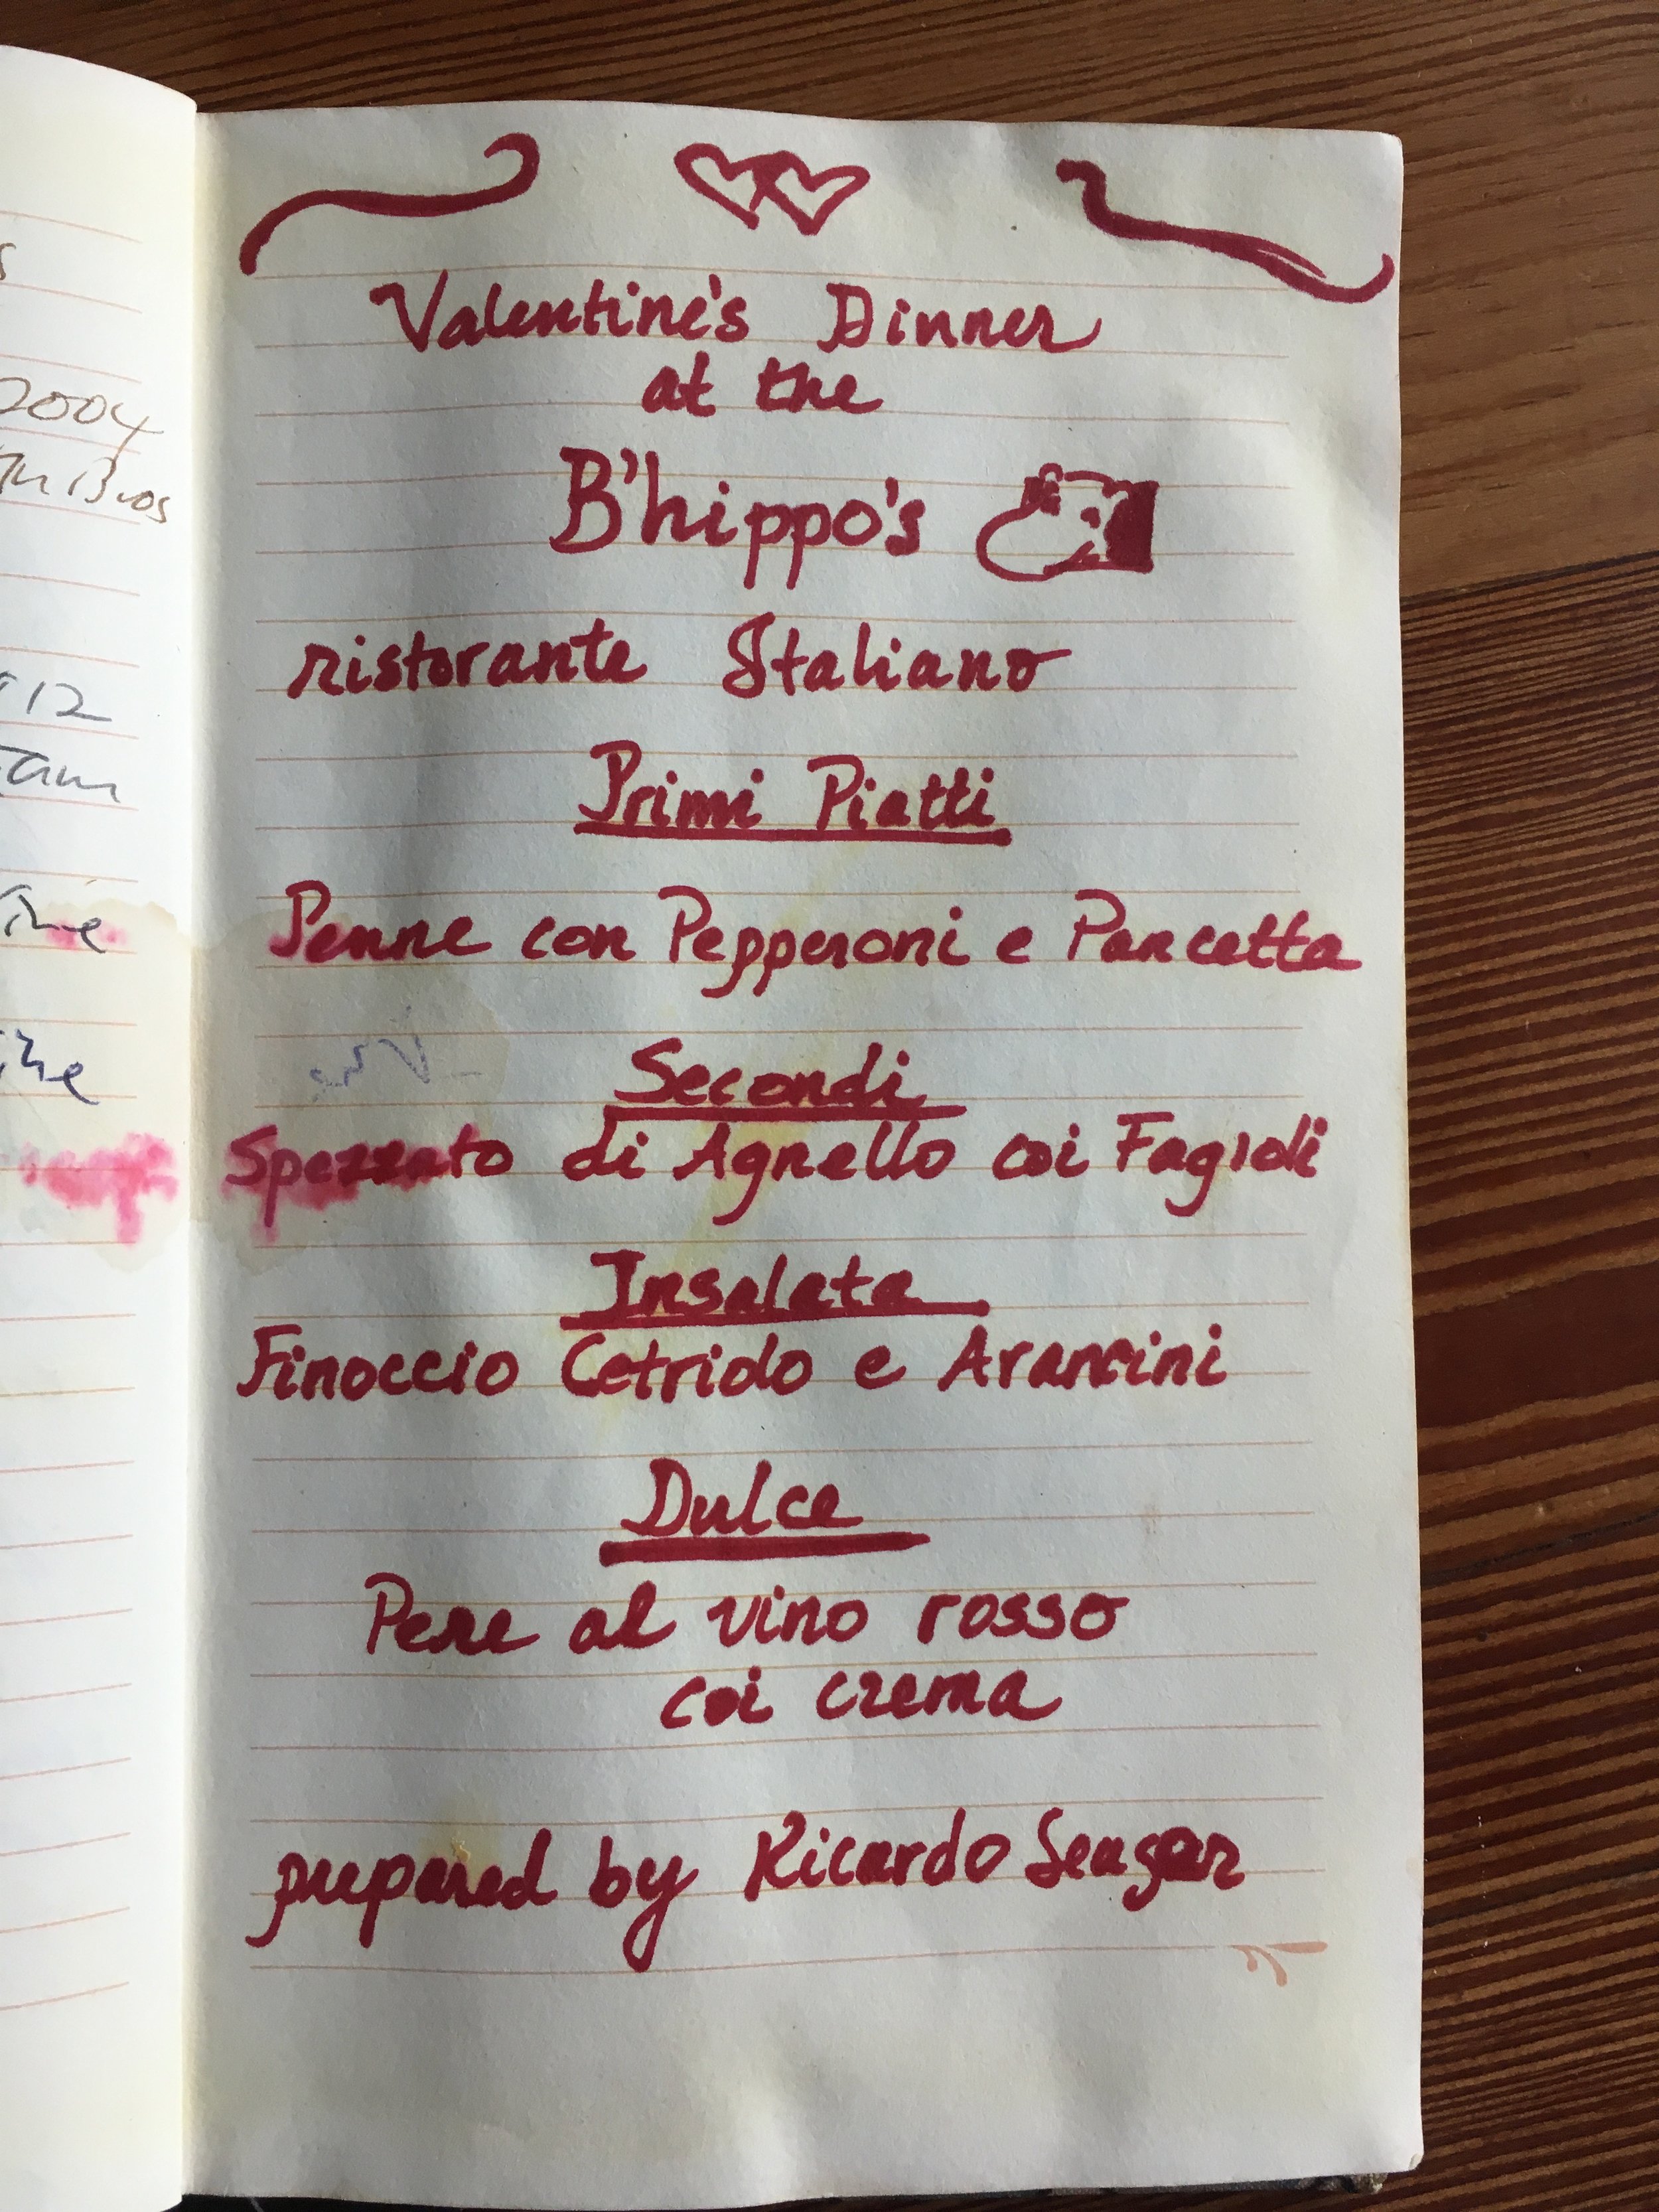 2004
12
Valentine's Dinner
at the
B'hippo's
ristorante Italiano
Primi Piatti
Penne con Pepperoni e Pancetta
Secondi
Spezzato di Agnello coi Fagioli
Insalata
Finoccio Cetriolo e Arancini
Dulce
Pere al vino rosso
coi crema
prepared by Ricardo Seagar